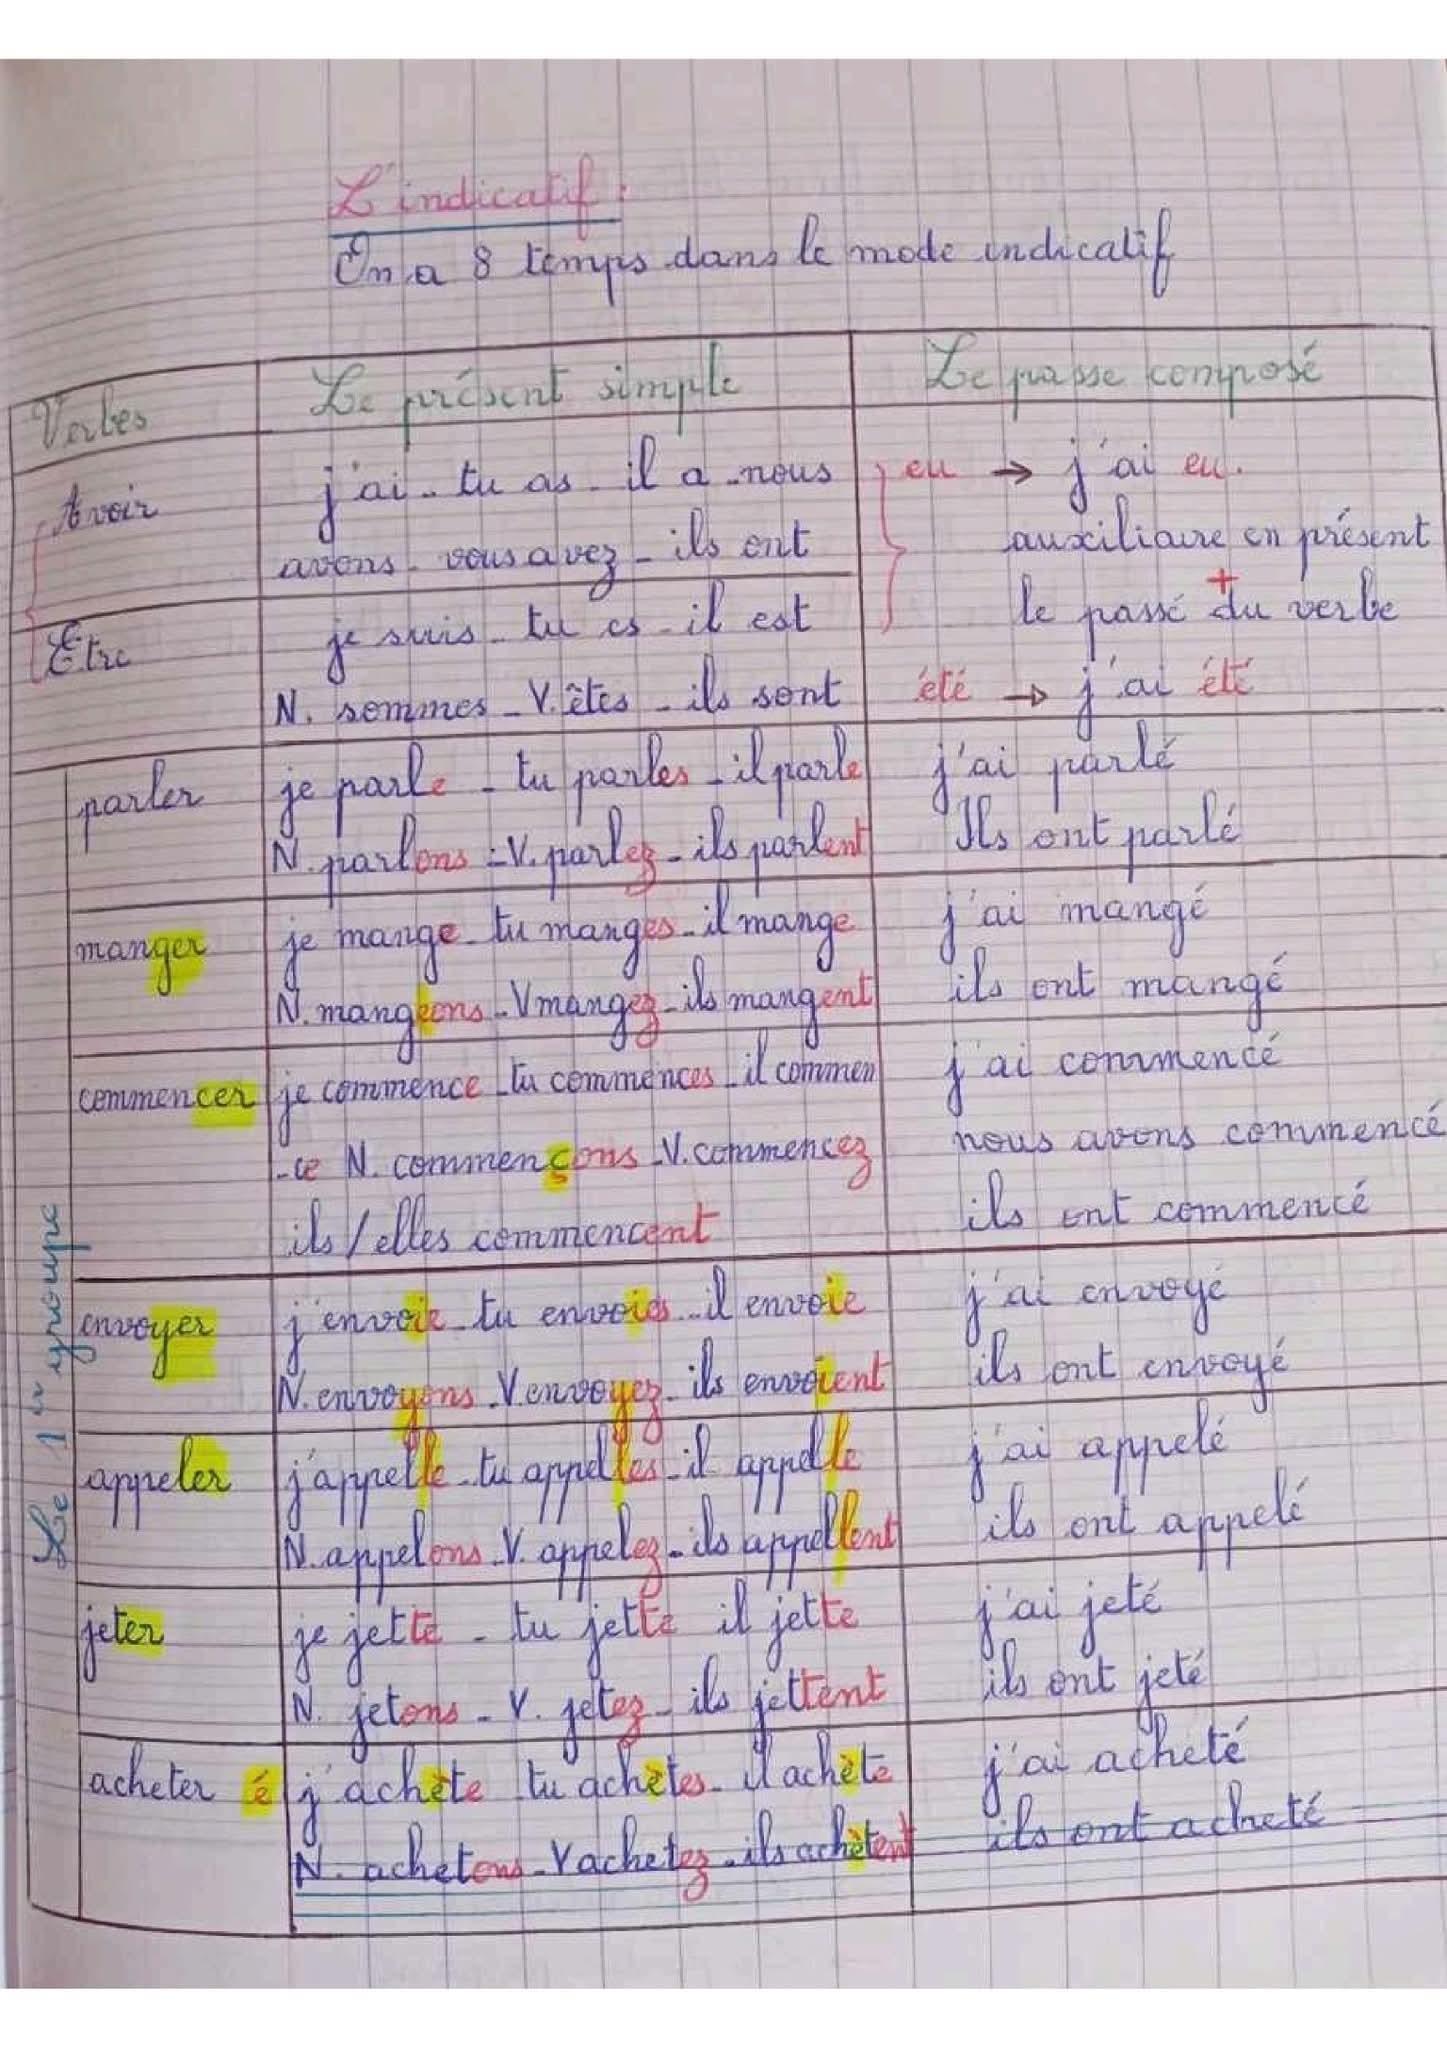 L'indicatif :
On a 8 temps dans le mode indicatif
Verbes Le présent simple Le passe composé
Avoir j'ai - tu as - il a - nous eu → j'ai eu.
avons - vous avez - ils ont auxiliaire en présent
+
Etre je suis - tu es - il est le passé du verbe
N. sommes - V. êtes - ils sont été → j'ai été
Le 1er groupe
parler je parle - tu parles - il parle j'ai parlé
N. parlons - V. parlez - ils parlent Ils ont parlé
manger je mange - tu manges - il mange j'ai mangé
N. mangeons - V mangez - ils mangent ils ont mangé
commencer je commence - tu commences - il commen j'ai commencé
-ce N. commençons - V. commencez nous avons commencé
ils / elles commencent ils ont commencé
envoyer j'envoie - tu envoies - il envoie j'ai envoyé
N. envoyons - V. envoyez - ils envoient ils ont envoyé
appeler j'appelle - tu appelles - il appelle j'ai appelé
N. appelons - V. appelez - ils appellent ils ont appelé
jeter je jette - tu jette il jette j'ai jeté
N. jetons - V. jetez - ils jettent ils ont jeté
acheter é j'achète tu achètes - il achète j'ai acheté
N. achetons - V achetez - ils achètent ils ont acheté